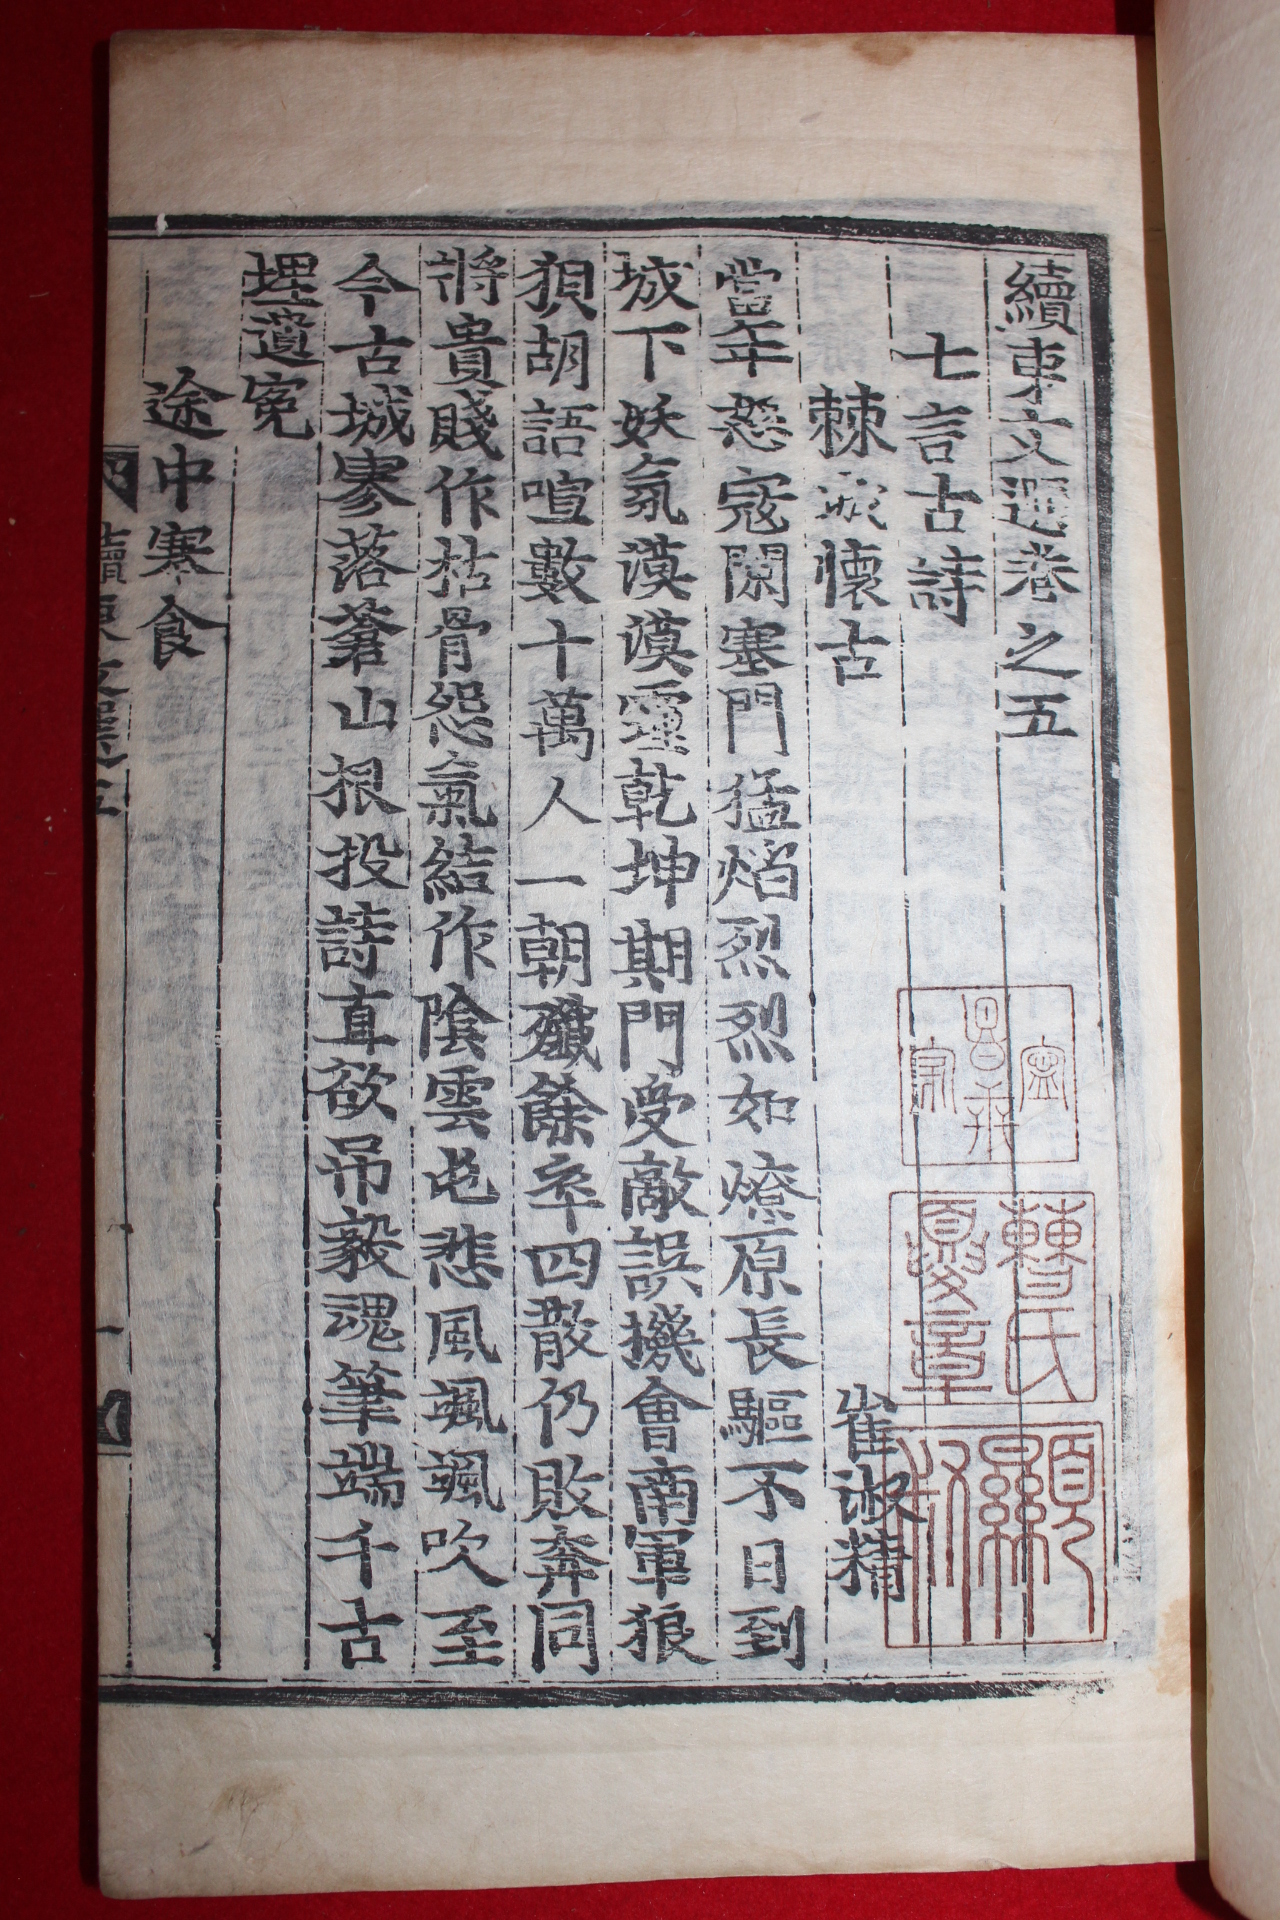 續東文選卷之五
七言古詩
棘城懷古 崔淑精
當年恣寇闌塞門猛焰烈烈如燎原長驅不日到
城下妖氛漠漠霾乾坤期門受敵誤機會南軍狼
狽胡語喧數十萬人一朝殲餘卒四散仍敗奔同
將貴賤作枯骨怨氣結作陰雲屯悲風颯颯吹至
今古城寥落蒼山根投詩直欲吊毅魂筆端千古
埋遺寃
途中寒食
續東文選五 一